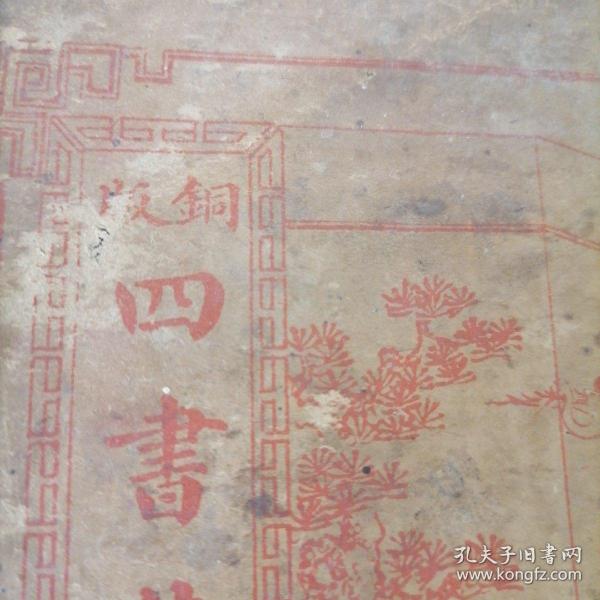 銅版
四書
孔夫子旧書网
www.kongfz.com